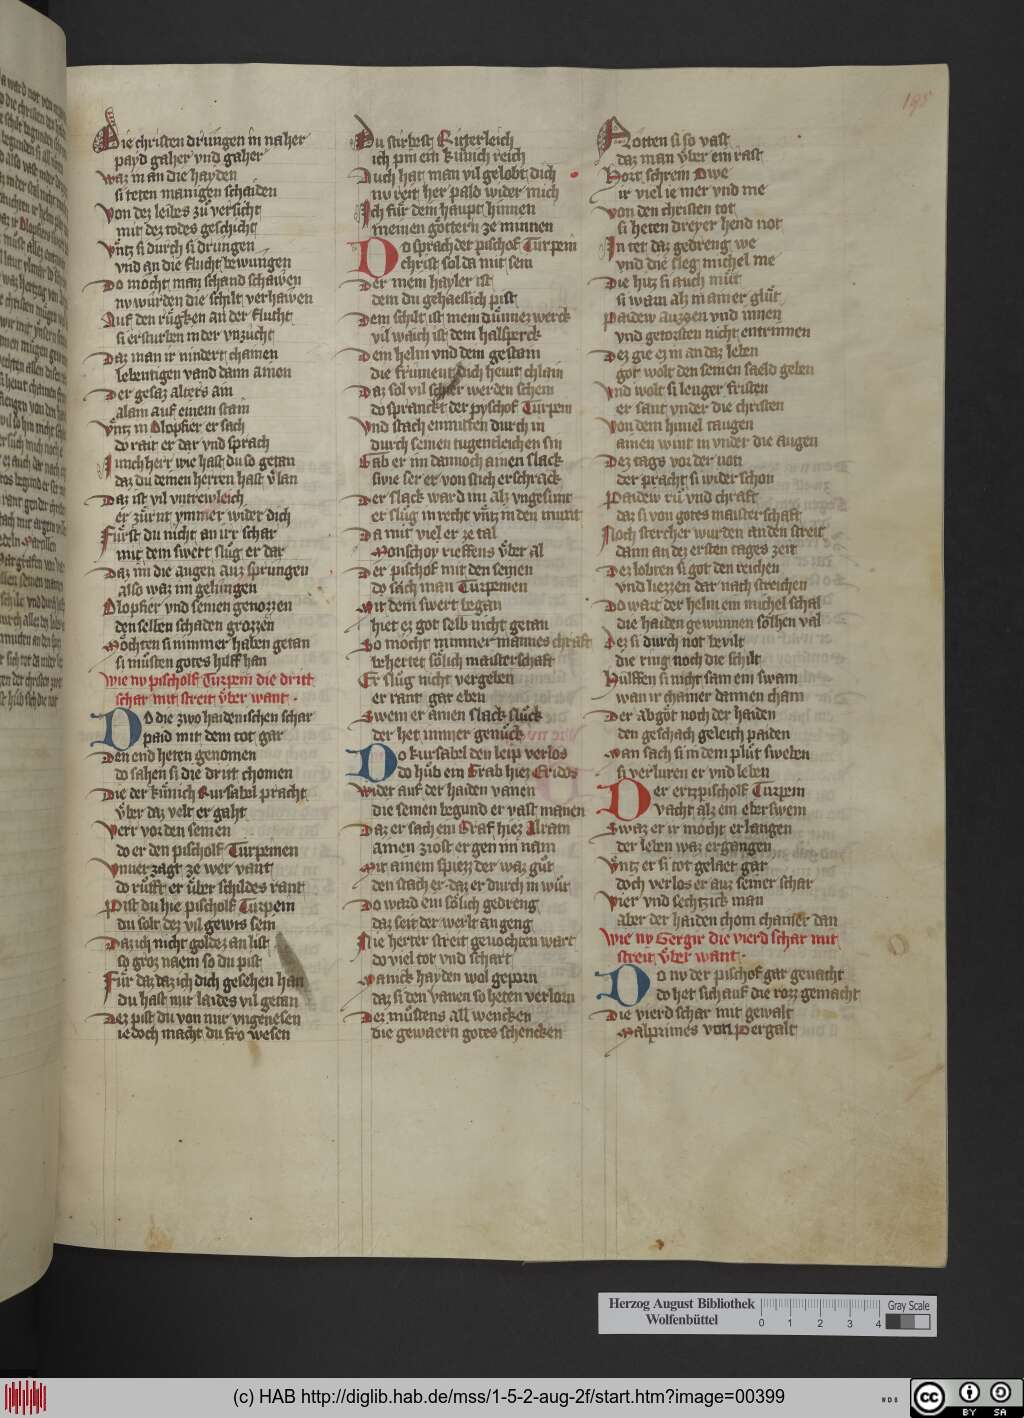 195
Die christen drungen in naher
payd gaher vnd gaher
waz in an die hayden
si teten manigen schaiden
Von dez leibes zu versicht
mit dez todes geschicht
Vntz si durch si drungen
vnd an die flucht bewungen
Do mocht man schand schawen
nv wurden die schilt verhawen
Auf den rugken an der flucht
si ersturben in der vnzucht
Daz man ir nindert chainen
lebentigen vand dann ainen
Der gesaz allers am
alain auf einem stain
Vntz in Olopfier er sach
do rait er dar vnd sprach
Junch herr wie hast du so getan
daz du deinen herren hast vlan
Daz ist vil vntrewleich
er zurnt ymmer wider dich
Furst du nicht an irr schar
mit dem swert slug er dar
Daz im die augen auz sprungen
also waz im gelungen
Olopfier vnd seinen genozzen
den selben schaden grozzen
Mochten si nimmer haben getan
si musten gotes hilff han
wie nv pischolf Turpein die dritt
schar mit streit vber want
Do die zwo haidenischen schar
paid mit dem tot gar
Den end heten genomen
do sahen si die dritt chomen
Die der kunich kursabil pracht
vber daz velt er gaht
Verr vor den seinen
do er den pischolf Turpeinen
Vnuerzagt ze wer vant
do rufft er vber schildes rant
Pist du hie pischolf Turpein
du solt dez vil gewis sein
Daz ich nicht goldez an list
so groz naem so du pist
Fur daz daz ich dich gesehen han
du hast mir laides vil getan
Dez pist du von mir vngenesen
iedoch macht du fro wesen
Du stirbest Ritterleich
ich pin ein kunich reich
Auch hat man vil gelobt dich
nv reit her pald wider mich
Ich fur dem haupt hinnen
meinen gottern ze minnen
Do sprach der pischof Turpein
christ sol da mit sein
Der mein hayler ist
dem du gehaessich pist
Dem schilt ist mein dunnez werck
vil waich ist dem halsperck
Dem helm vnd dem gestain
die frument dich hewt chlain
Daz sol vil schier werden schein
do spranckt der pyschof Turpein
Vnd stach enmitten durch in
durch seinen tugentleichen sin
Gab er im dannoch ainen slack
swie ser er von stich erschrack
Der slack ward im alz vngesunt
er slug in recht vntz in den munt
Da mit viel er ze tal
Monschoy rieffens vber al
Der pischof mit den seinen
do sach man Turpeinen
Mit dem swert began
hiet ez got selb nicht getan
So mocht nimmer mannes chraft
behertet solich maisterschaft
Er slug nicht vergeben
er rant gar eben
Swem er ainen slack sluck
der het immer genuck
Do kursabel den leip verlos
do hub ein Graf hiez Eridos
Wider auf der haiden vanen
die seinen begund er vast manen
Daz er sach ein Graf hiez Alrain
ainen ziost er gen im nam
Mit ainem spiezz der waz gut
den stach er daz er durch in wut
Do ward ein solich gedreng
daz seit der werlt an geng
Nie herter streit geuochten wart
do viel tot vnd schart
Manick hayden wol geporn
daz si den vanen so heten verlorn
Dez mustens all wencken
die gewaern gotes schencken
Rotten si so vast
daz man vber ein rast
Hort schrein Owe
ir viel ie mer vnd me
Von den christen tot
si heten dreyer hend not
In tet daz gedreng we
vnd die sleg michel me
Die hitz si auch mut
si warn alz in ainer glut
Paidew auzzen vnd innen
vnd getorsten nicht entrinnen
Dez gie ez in an daz leben
got wolt den seinen saeld geben
Vnd wolt si lenger fristen
er sant vnder die christen
Von dem himel taugen
ainen wint in vnder die augen
Dez tags vor der non
der pracht si wider schon
Paidew ru vnd chraft
daz si von gotes maisterschaft
Noch stercher wurden an den streit
dann an dez ersten tages zeit
Dez lobten si got den reichen
vnd liezzen dar nach streichen
Do wart der helm ein michel schal
die haiden gewunnen solhen val
Dez si durch not bevilt
die ring noch die schilt
Hulffen si nicht sam ein swam
wan ir chainer dannen cham
Der abgot noch der haiden
den geschach geleich paiden
Man sach si in dem plut sweben
si verluren er vnd leben
Der ertzpischolf Turpein
vacht alz ein eberswein
Swaz er ir mocht erlangen
der leben waz ergangen
Vntz er si tot gelaet gar
doch verlos er auz seiner schar
Vier vnd sechtzick man
aber der haiden chom chainer dan
wie nv Gergir die vierd schar mit
streit vber want
Do nv der pischof gar geuacht
do het sich auf die rozz gemacht
Die vierd schar mit gewalt
Malprimes von Pergalt
Herzog August Bibliothek
Wolfenbüttel
0 1 2 3 4
Gray Scale
(c) HAB http://diglib.hab.de/mss/1-5-2-aug-2f/start.htm?image=00399
WDB
CC BY SA